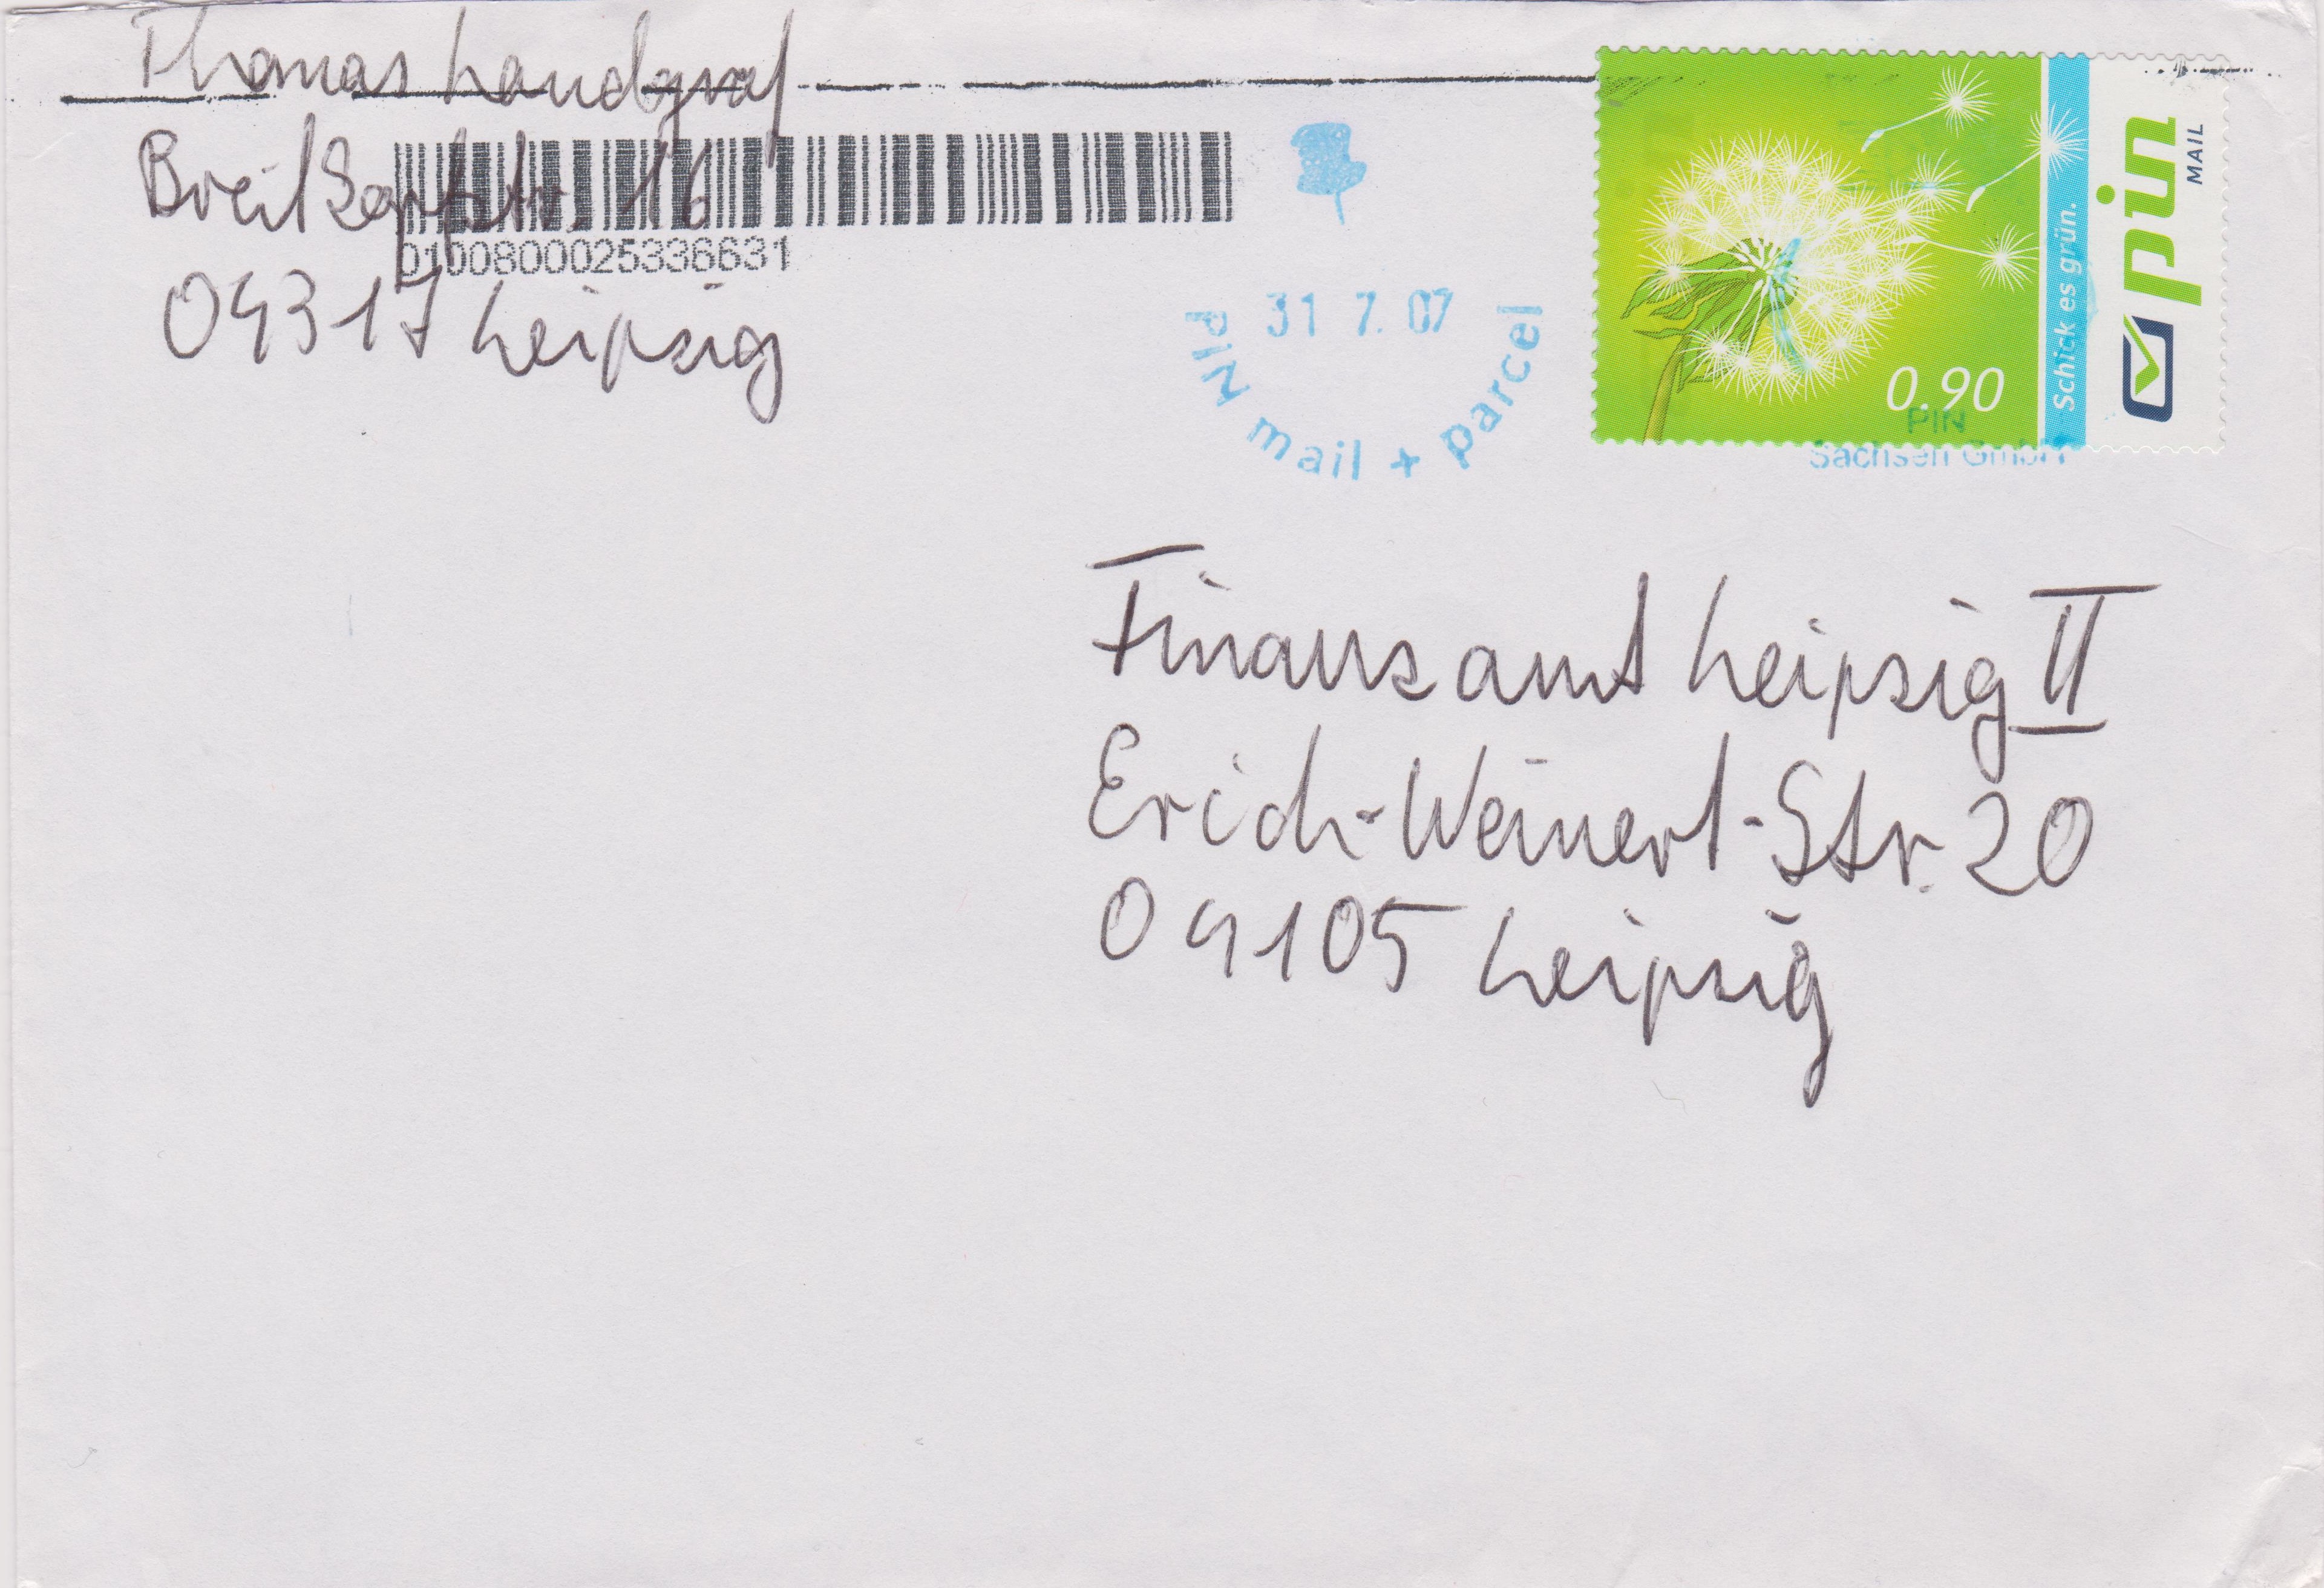 Thomas Landgraf
Breitkopfstr. 16
0100800025336631
04317 Leipzig
31 7. 07
PIN mail + parcel
0.90
Schick es grün.
pin
MAIL
PIN
Sachsen GmbH
Finanzamt Leipzig II
Erich-Weinert-Str. 20
04105 Leipzig